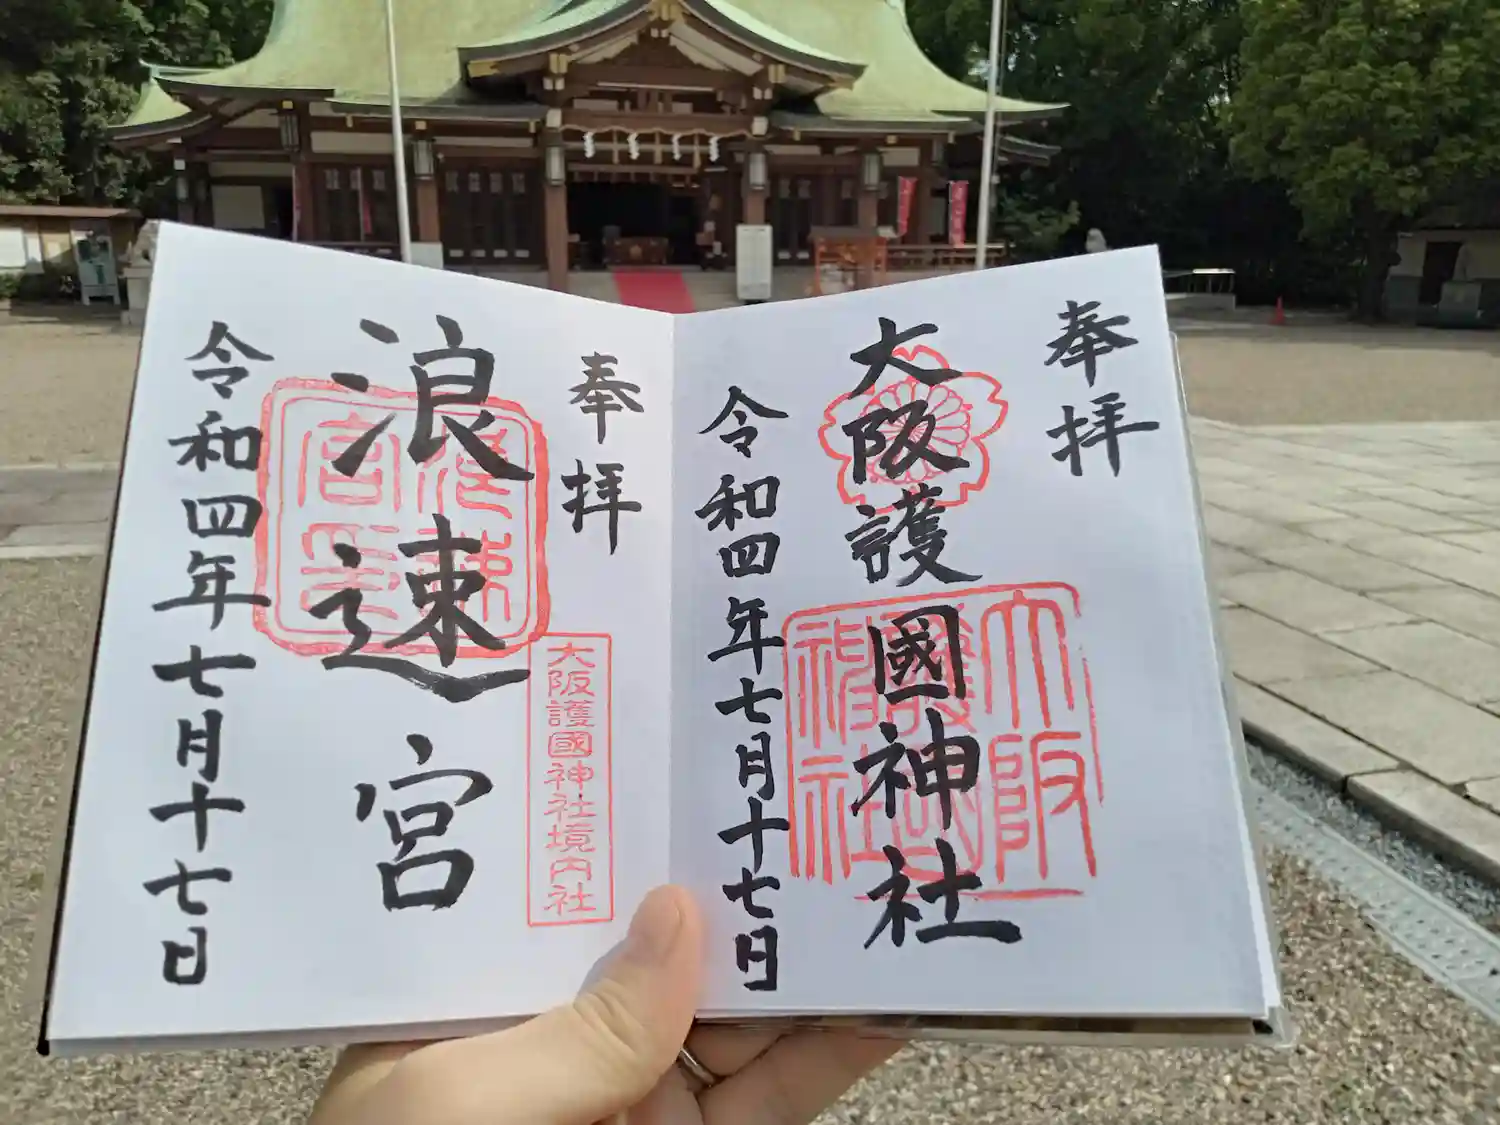 奉拝
大阪護國神社
令和四年七月十七日
大阪
護國
神社
奉拝
浪速宮
令和四年七月十七日
大阪護國神社境内社